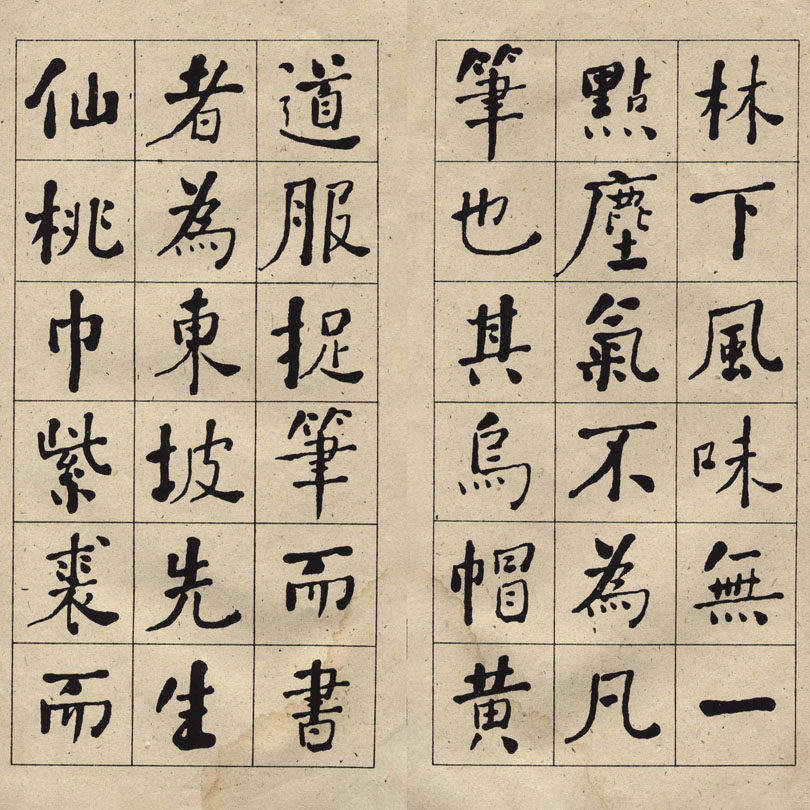 林下風味無一
點塵氣不為凡
筆也其烏帽黃
道服捉筆而書
者為東坡先生
仙桃巾紫裘而